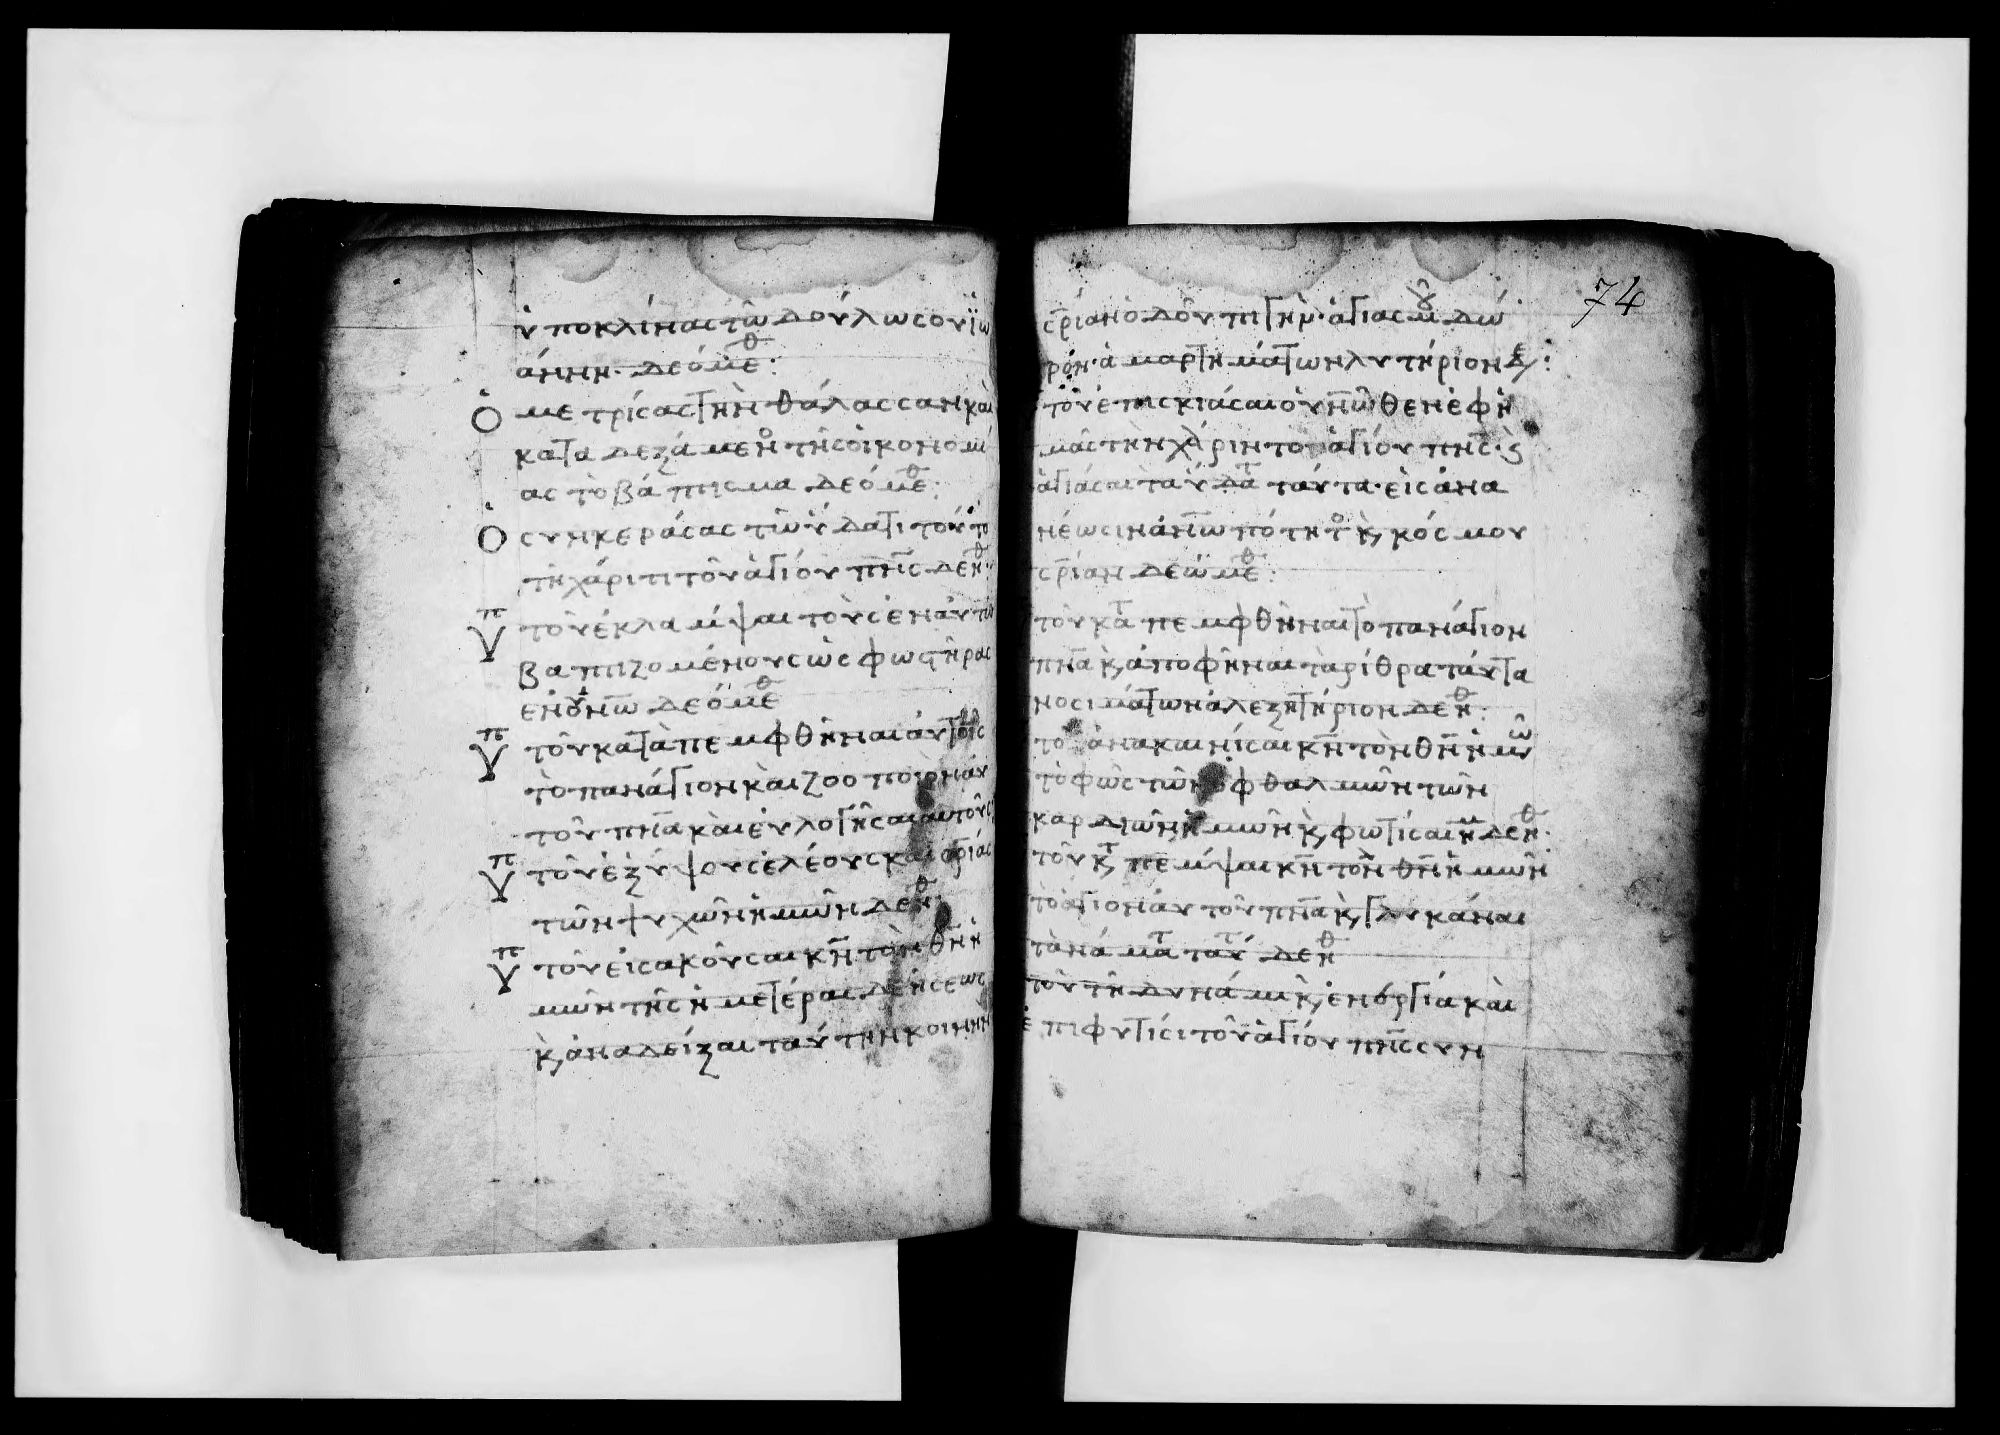 ὑποκλίνας τῶ δούλω σου ϊω
άννη· δεόμεθ:
Ὁ μετρίσας τὴν θάλασσαν καὶ
καταδεξάμενο τῆς οἰκονομί
ας τὸ βάπτισμα δεόμεθ:
Ὁ συνκεράσας τῶ ὕδατι τούτο
τη χάριτι τοῦ ἁγίου πνς δεηθ:
Ὑπ τοῦ ἐκλάμψαι τοὺς ἐν αυτω
βαπτιζομένους ὡς φωστῆρας
ἐν οὐνω δεόμεθ
Ὑπ τοῦ καταπεμφθῆναι ἀυτοῖς
τὸ πανάγιον καὶ ζοοποιὸν ἀυ
τοῦ πνα καὶ ἐυλογῆσαι αυτοὺς
Ὑπ τοῦ ἐξ ὕψους ἐλέους καὶ σρίας
τῶν ψυχῶν ἡμῶν δεηθ:
Ὑπ τοῦ εἰσακοῦσαι κν τὸν θν ἡ
μῶν τῆς ἡμετέρας δεήσεως
κ, ἀναδεῖξαι ταύτην κοινὴν
74
σρίαν ὁδοῦ πηγὴν· ἁγιασμοῦ δώ
ρον· ἁμαρτημάτων λυτήριον δ:
τοῦ ἐπισκιάσαι οὐνωθεν ἐφ ἡ
μᾶς τὴν χάριν το ἁγίου πνς· ς
ἁγιάσαι τὰ ὕδατ ταύτα· εἰς ἀνα
νέωσιν ἀνωπότητο κ, κόσμου
σρίαν δεώμεθ:
τοῦ κατ πεμφθῆναι τὸ πανάγιον
πνα κ, ἀποφῆναι τὰ ρίθρα τάυτα
νοσιμάτων ἀλεξητήριον δεηθ:
το ἀνακαινίσαι κν τὸν θν ἡμῶ
τὸ φῶς τῶν ὀφθαλμῶν τῶν
καρδιῶν ἡμῶν κ, φωτίσαι ημ δεηθ:
τοῦ κτ πέμψαι κν τὸν θν ἡμῶν
τὸ ἅγιον ἀυτοῦ πνα κ, γλυκάναι
τὰ νάματ ταύτ δεηθ
τοῦ τῆ δυνάμι κ, ἐνεργία καὶ
ἐπιφυτίσι τοῦ ἁγίου πνς συν